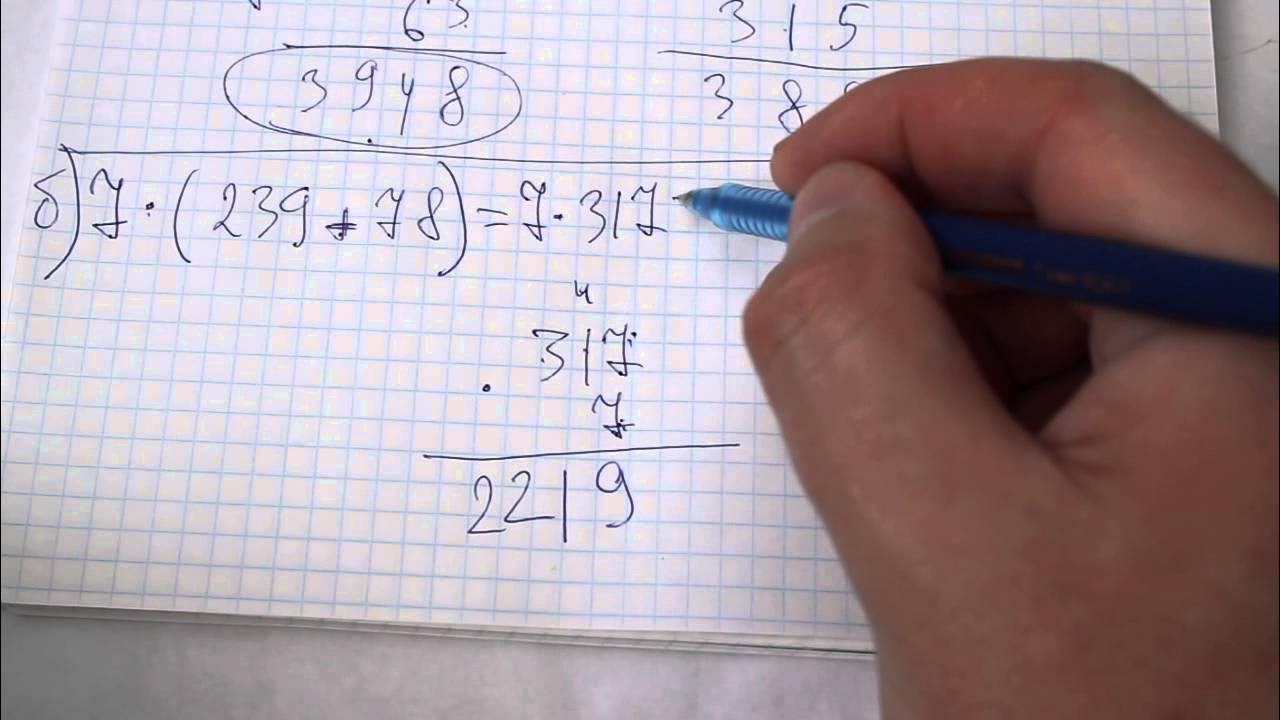 63
315
3948
38
б) 7·(239+78)=7·317
4
317
·
7
2219